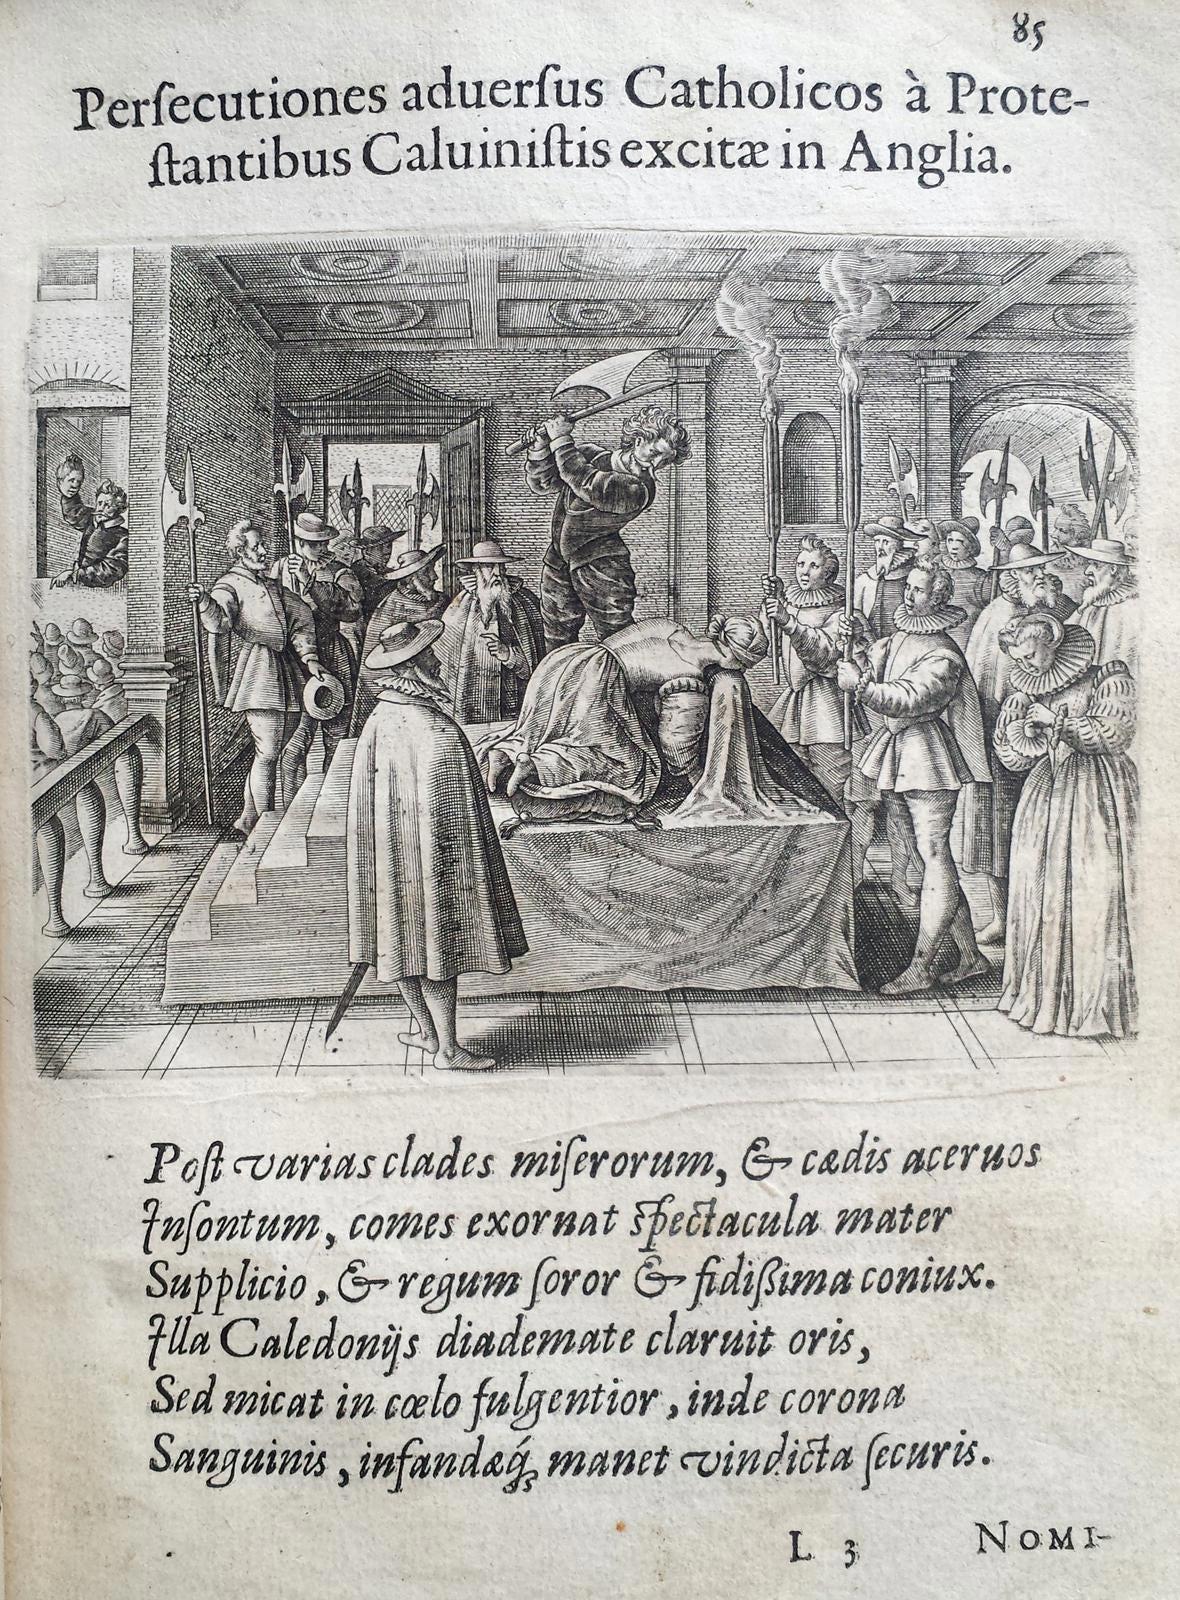 85
Perſecutiones aduerſus Catholicos à Prote-
ſtantibus Caluiniſtis excitæ in Anglia.
Poſt varias clades miſerorum, & cædis aceruos
Inſontum, comes exornat ſpectacula mater
Supplicio, & regum ſoror & fidiſſima coniux.
Illa Caledonijs diademate claruit oris,
Sed micat in cœlo fulgentior, inde corona
Sanguinis, infandæq́ꝫ manet vindicta ſecuris.
L 3 NOMI-